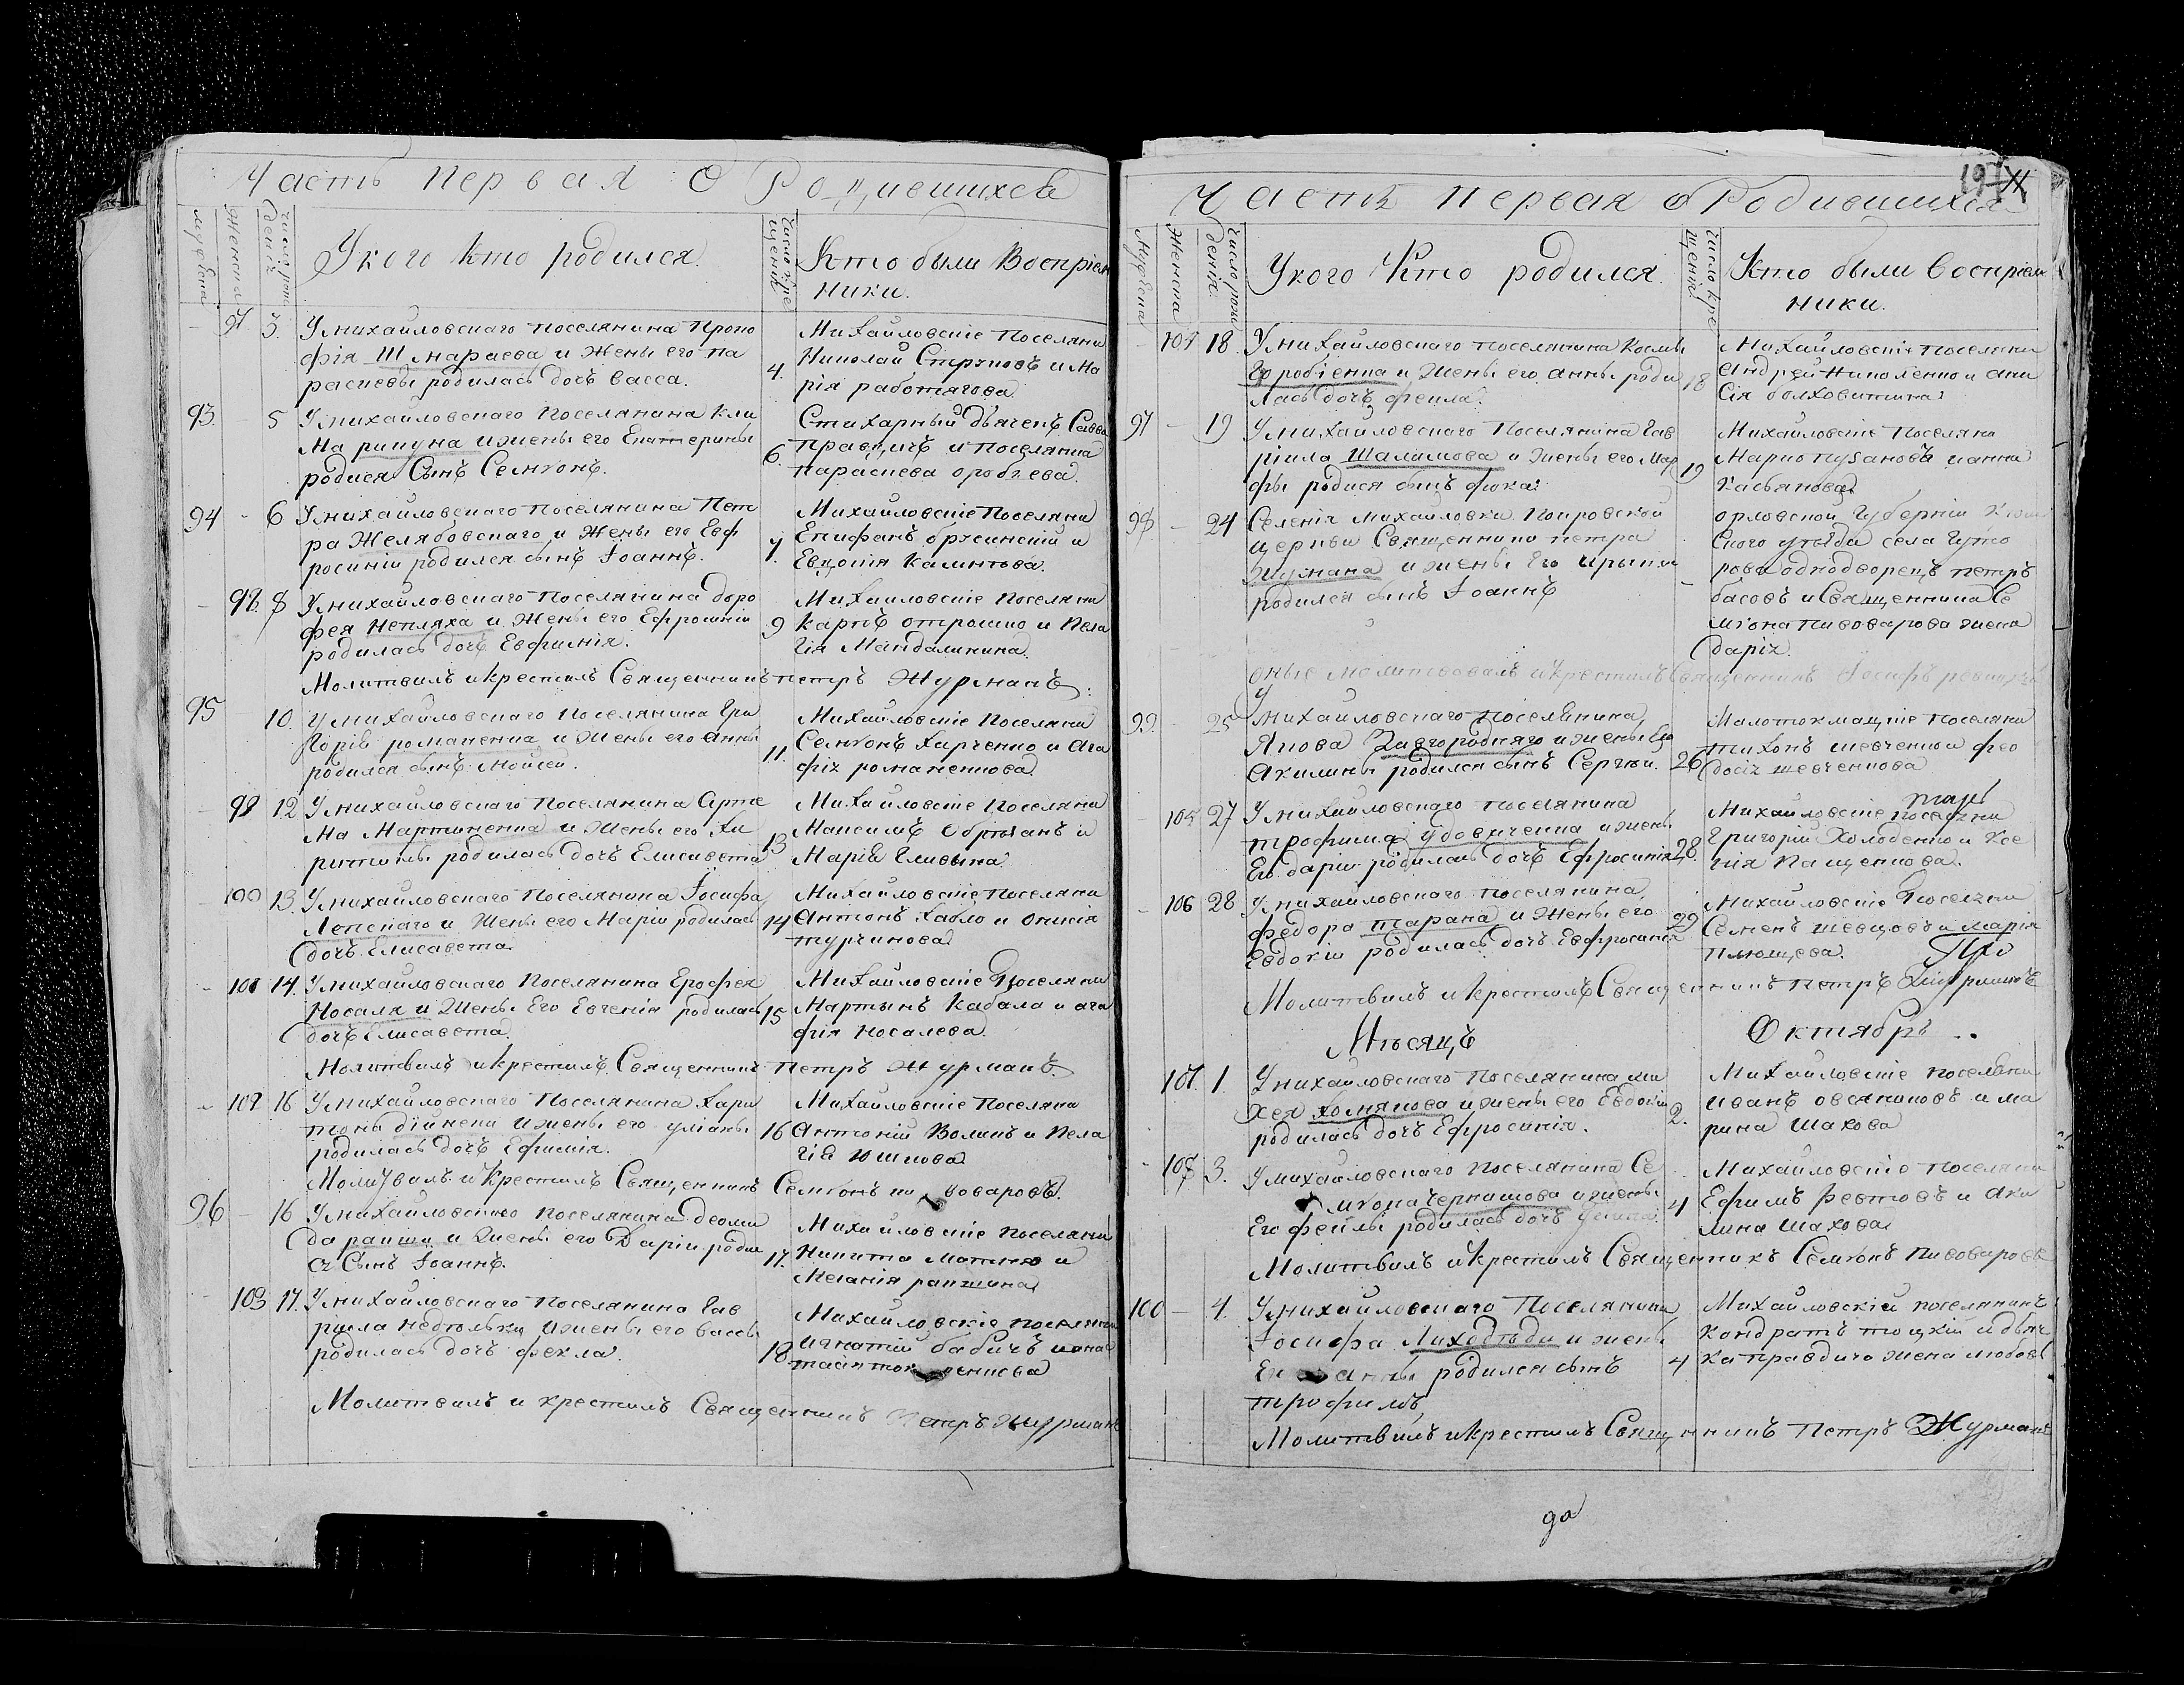 Часть Первая О Родившихся
Мужеска
Женска
Число рождения
У кого кто родился.
Число крещения
Кто были Воспріем
ники.
97 3. У михайловскаго поселянина Проко
фія Шмараева и жены его па
раскевы родилась дочь васса.
4.
Михайловскіе поселяни
Николай Стрюковъ и Ма
рія работягова
93. - 5 У михайловскаго поселянина Кли
ма рипуна и жены его Екатерины
родися Сынъ Семіонъ.
6.
Стихарный дьячекъ Савва
Правдичь и поселянка
параскева оробчева.
94 - 6 У михайловскаго поселянина Пет
ра Желябовскаго и жены его Евф
росиніи родился сынъ Іоаннъ.
7.
Михайловскіе Поселяни
Епифанъ брусинскій и
Евдокія Калинтова.
- 98. 8 У михайловскаго поселянина доро
фея Непляха и жены его Ефросиніи
родилась дочь Евфимія.
9
Михайловскіе поселяни
карпъ отрошко и Пела
гія Мандалинина.
Молитвилъ и крестилъ Священникъ петръ Журманъ.
95 10. У михайловскаго поселянина Гри
горія романенка и жены его анны
родился сынъ Моисей.
11.
Михайловскіе поселяни
Семіонъ Харченко и Ага
фія романенкова.
- 99 12 У михайловскаго поселянина Арте
ма Мартиненка и жены его Ха
ритины родилась дочь Елисавета
13
Михайловскіе поселяни
Максимъ Обрізанъ и
Марія Гливына.
- 100 13. У михайловскаго поселянина Іосифа
Лепскаго и жены его Маріи родилась
дочь Елисавета.
14
Михайловскіе поселяни
Антонъ Хабло и Онисія
турчинова.
- 101 14. У михайловскаго поселянина Ерофея
Носаля и жены Его Евгенія родилась
дочь Елисавета.
15
Михайловскіе Поселяни
Мартынъ Кабала и ага
фія Носалева.
Молитвилъ и крестилъ Священникъ петръ журманъ.
- 102 16 У михайловскаго поселянина Хари
тона дійнеки и жены его уліаны
родилась дочь Ефимія.
16
Михайловскіе Поселяни
Антоній Воликъ и Пела
гія Юшкова
Молитвалъ и крестилъ Священникъ Семіонъ пивоваровъ.
96 - 16 У михайловскаго поселянина деоми
да рапши и жены его Даріи родил
ся Сынъ Іоаннъ.
17.
Михайловскіе поселяни
Никита Матяко и
Меланія рапшина
- 103 17. У михайловскаго поселянина Гав
риила недтолька и жены его вассы
родилась дочь фекла.
18
Михайловскіе поселяни
игнатій бабичъ и анас
тасія
Молитвилъ и крестилъ Священникъ Петръ журманъ
197
Часть первая О Родившихся
Мужеска
Женска
Число рождения.
У кого Кто родился.
Число крещения.
Кто были воспріем
ники.
- 104 18. У михайловскаго поселянина Космы
Горобіенка и жены его анны роди
лась дочь фекла.
18
Михайловскіе поселяни
андрей Николенко и ани
сія болховитина
97 - 19 У михайловскаго поселянина Гав
ріила Шалимова и жены его Мар
фы родися сынъ фока.
19
Михайловскіе Поселяни
Марко пузановъ и анна
Касьянова
98 - 24 Селенія Михайловки Покровской
церкви Священника петра
Журмана и жены Его ирыны
родился сынъ Іоаннъ
-
орловской Губерніи
скаго уѣзда села Гуто
рова однодворецъ петръ
басовъ и Священника Се
міона пивоварова жена
дарія.
оные молитвовалъ и крестилъ Священникъ Іосифъ
99. - 25 У михайловскаго поселянина,
Якова Завгородняго и жены Его
Акилины родился сынъ Сергий.
26
Малотокмацкіе поселяни
тихонъ шевченко и фео
досія шевченкова
- 105 27 У михайловскаго поселянина
трофима Удовиченка и жены
Его даріи родилась дочь Ефросинія
28.
Михайловскіе поселяни
Григорій Холоденко и Ксе
нія Пащенкова.
- 106 28 У михайловскаго поселянина,
федора тарана и жены его
Евдокіи родилась дочь Евфросинія
29
Михайловскіе Поселяни
Семенъ шевцовъ и марія
Плющева.
Молитвилъ и крестилъ Священникъ петръ Журманъ
Мѣсяцъ Октябрь
107. 1. У михайловскаго поселянина ми
хея хомякова и жены его Евдокіи
родилась дочь Ефросинія.
2.
Михайловскіе поселяни
Иванъ овсяниковъ и ма
рина Шахова
- 108 3. У михайловскаго поселянина Се
міона Чернишова и жены
Его феклы родилась дочь
4
Михайловскіе поселяни
Ефимъ Ревтовъ и Аки
лина Шахова
Молитвилъ и крестилъ Священникъ Семіонъ Пивоваровъ
100 - 4. У михайловскаго Поселянина
Іосифа Лиходѣда и жены
Его анны родился сынъ
трофимъ
4
Михайловскій поселянинъ
кондратъ тоцкій и дьяч
ка правдича жена любовь
Молитвилъ и крестилъ Священникъ Петръ Журманъ